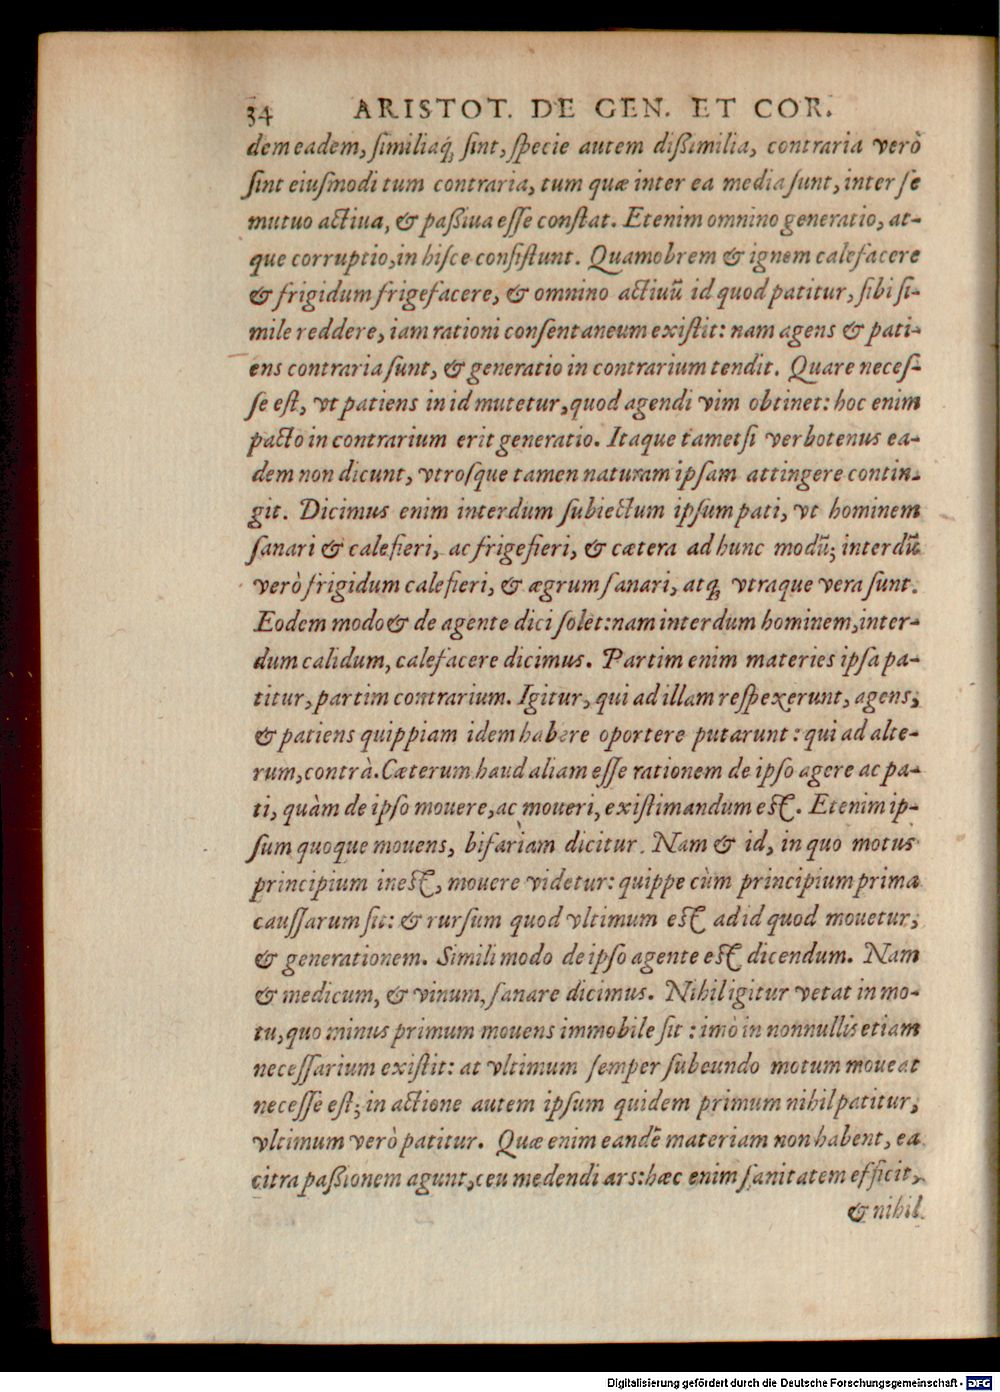 34 ARISTOT. DE GEN. ET COR.
dem eadem, similiaq́; sint, specie autem dißimilia, contraria verò
sint eiusmodi tum contraria, tum quæ inter ea media sunt, inter se
mutuo actiua, & paßiua esse constat. Etenim omnino generatio, at-
que corruptio, in hisce consistunt. Quamobrem & ignem calefacere
& frigidum frigefacere, & omnino actiuū id quod patitur, sibi si-
mile reddere, iam rationi consentaneum existit: nam agens & pati-
ens contraria sunt, & generatio in contrarium tendit. Quare neces-
se est, vt patiens in id mutetur, quod agendi vim obtinet: hoc enim
pacto in contrarium erit generatio. Itaque tametsi verbotenus ea-
dem non dicunt, vtrosque tamen naturam ipsam attingere contin-
git. Dicimus enim interdum subiectum ipsum pati, vt hominem
sanari & calefieri, ac frigefieri, & cætera ad hunc modū; interdū
verò frigidum calefieri, & ægrum sanari, atq; vtraque vera sunt.
Eodem modo & de agente dici solet: nam interdum hominem, inter-
dum calidum, calefacere dicimus. Partim enim materies ipsa pa-
titur, partim contrarium. Igitur, qui ad illam respexerunt, agens,
& patiens quippiam idem habere oportere putarunt: qui ad alte-
rum, contrà. Cæterum haud aliam esse rationem de ipso agere ac pa-
ti, quàm de ipso mouere, ac moueri, existimandum est. Etenim ip-
sum quoque mouens, bifariàm dicitur. Nam & id, in quo motus
principium inest, mouere videtur: quippe cùm principium prima
caussarum sit: & rursum quod vltimum est ad id quod mouetur,
& generationem. Simili modo de ipso agente est dicendum. Nam
& medicum, & vinum, sanare dicimus. Nihil igitur vetat in mo-
tu, quo minus primum mouens immobile sit: imò in nonnullis etiam
necessarium existit: at vltimum semper subeundo motum moueat
necesse est; in actione autem ipsum quidem primum nihil patitur,
vltimum verò patitur. Quæ enim eandē materiam non habent, ea
citra paßionem agunt, ceu medendi ars: hæc enim sanitatem efficit,
& nihil
Digitalisierung gefördert durch die Deutsche Forschungsgemeinschaft - DFG